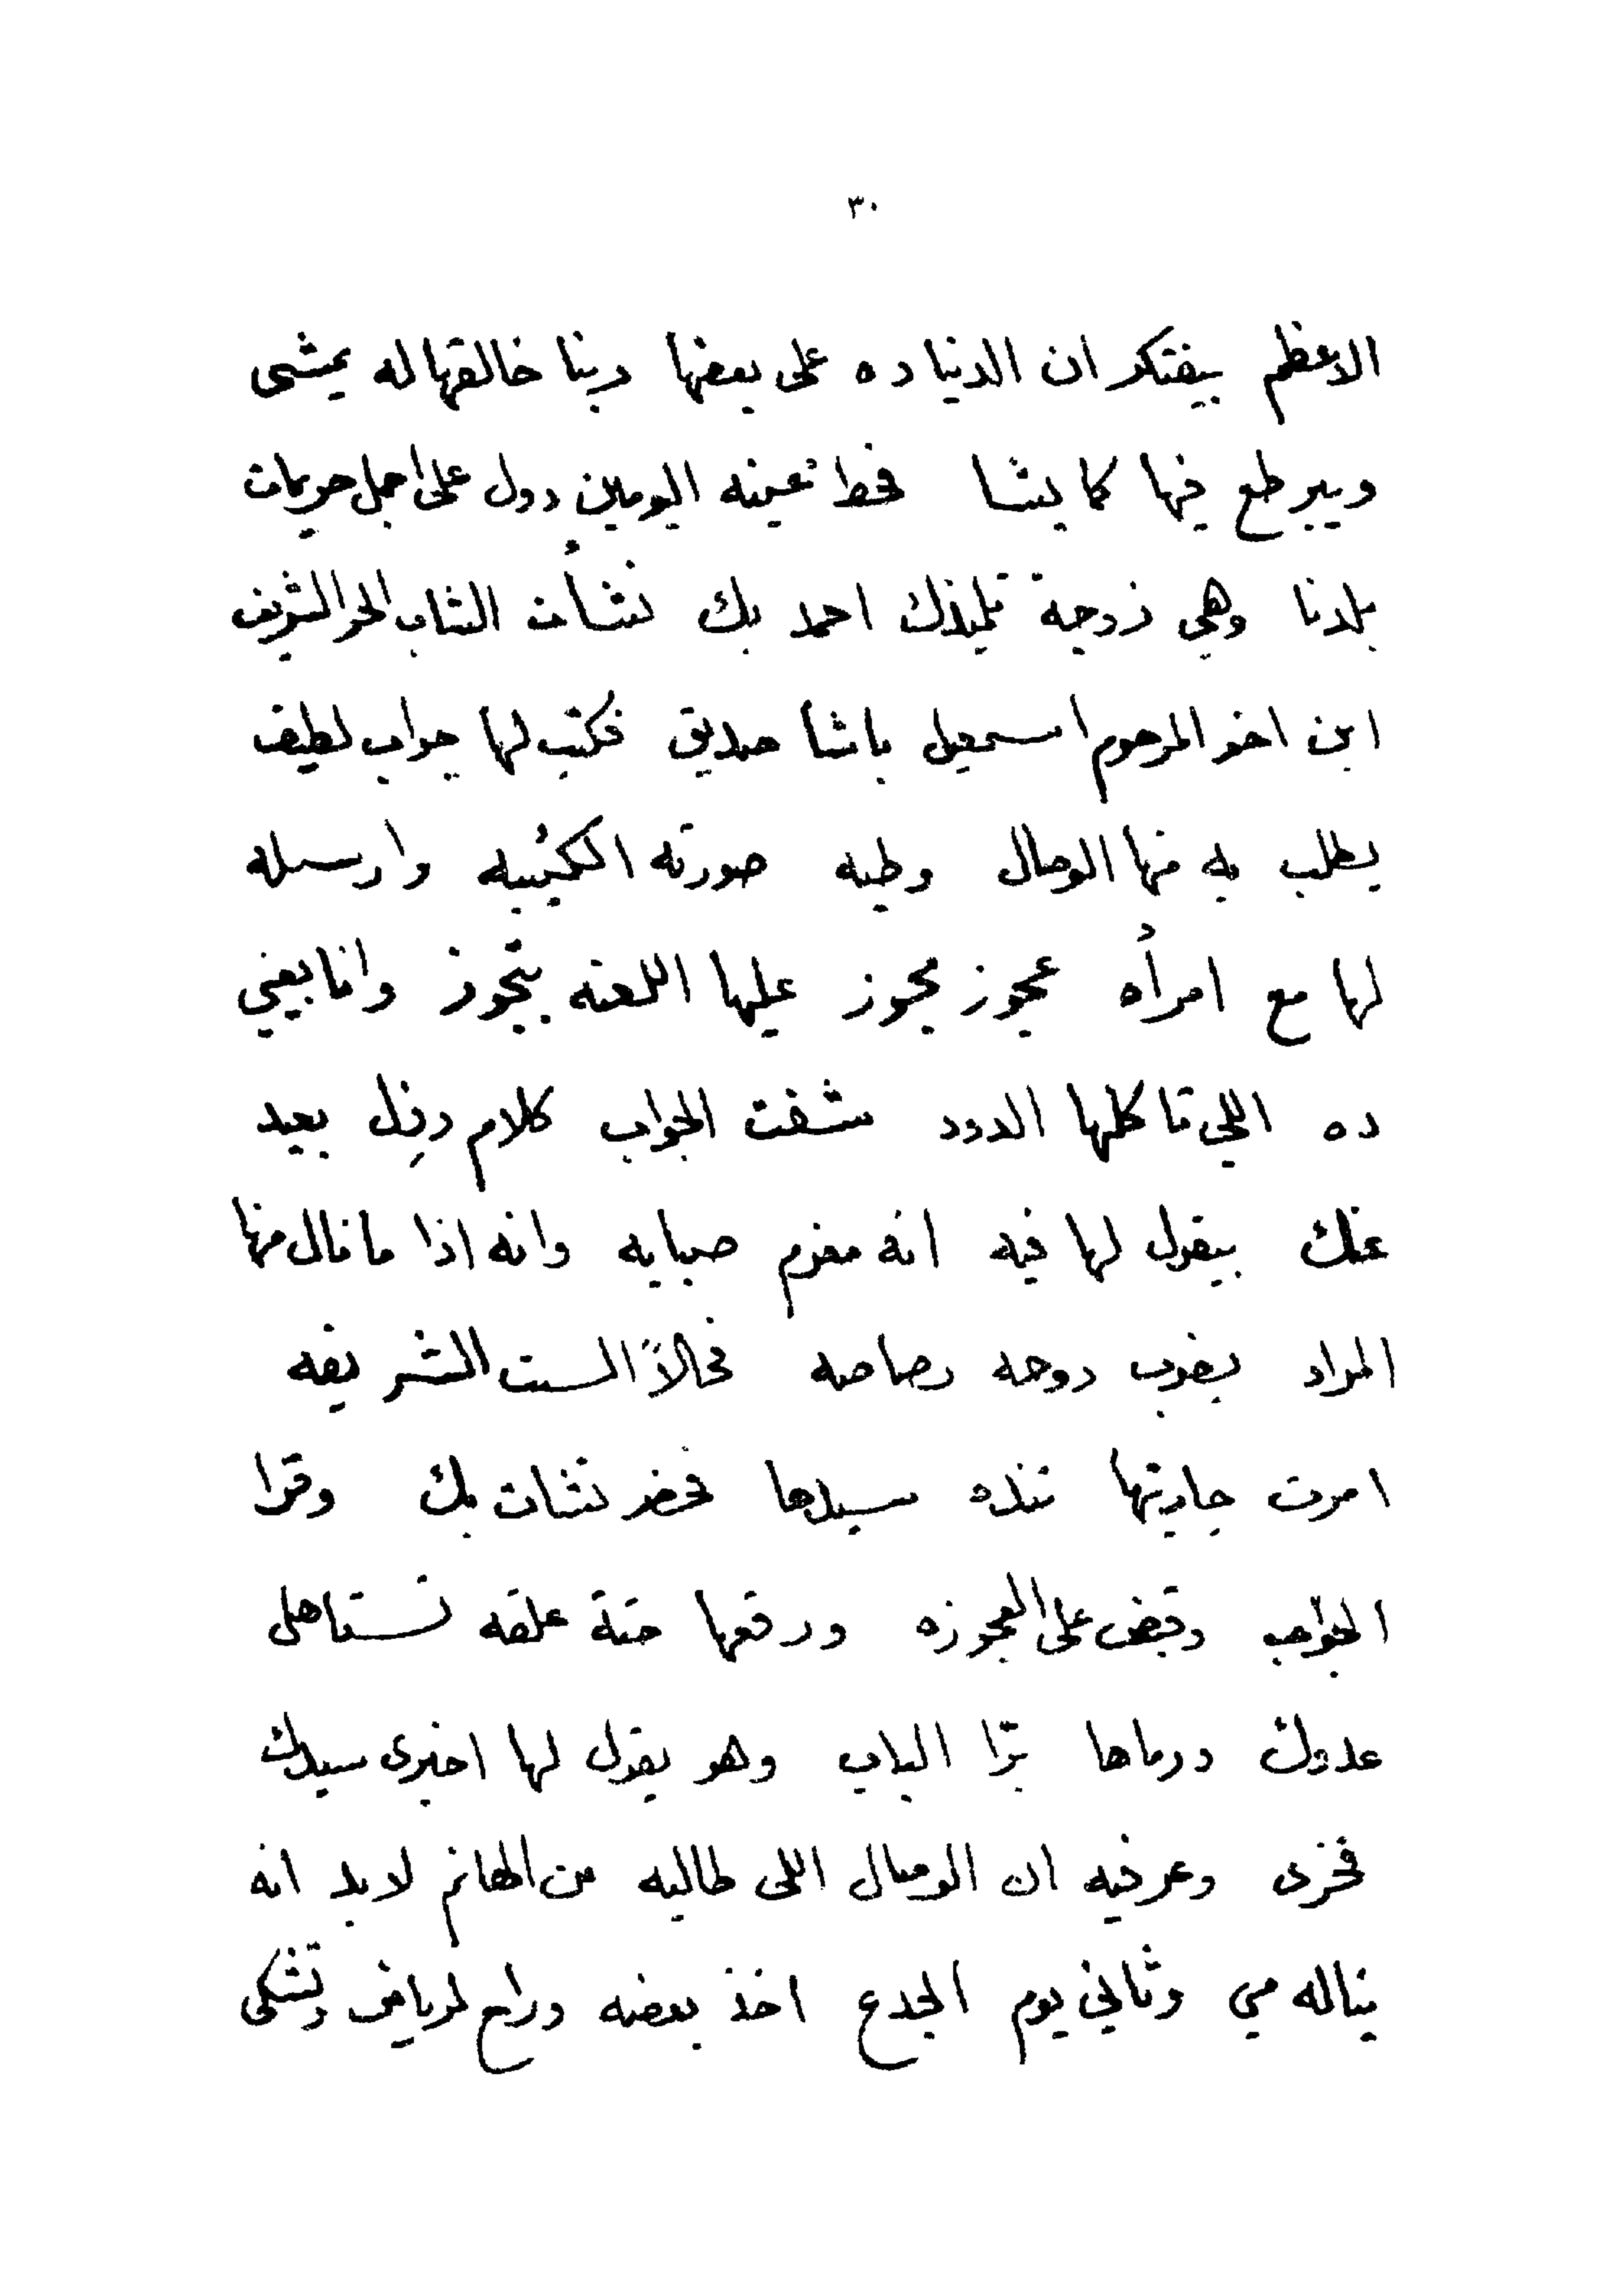 ٣٠
الاعظم بيفتكر ان الدنيا ده على بعضها ربنا خالقها له يمشى
ويبرطع فيها كما يشا فحط عينه اليومين دول على اجمل حريمات
بلدنا وهي زوجة تلميذك احمد بك نشأت الشاب الحر الشريف
ابن اخو المرحوم اسمعيل باشا صديق فكتب لها جواب لطيف
يطلب به منها الوصال وطيه صورته الكئيبه وارسله
لها مع امرأه عجوز مجوز عليها اللعنه بتجوز وانا بعيني
ده اللي تاكلها الدود شفت الجواب كلام رزل بعيد
عنك بيقول لها فيه انه مغرم صبابه وانه اذا ما نال منها
المراد يضرب روحه رصاصه فحالاً الست الشريفه
امرت جاريتها تنده سيدها فحضر نشات بك وقرا
الجواب وقبض على العجوزه ورقعها حتة علقه تستاهل
عدوك ورماها برّا الباب وهو يقول لها اخبرى سيدك
فخرى وعرفيه ان الوصال اللى طالبه من الهانم لا بد انه
يناله مني وثاني يوم الجدع اخذ بعضه وراح لرياض وتشكى